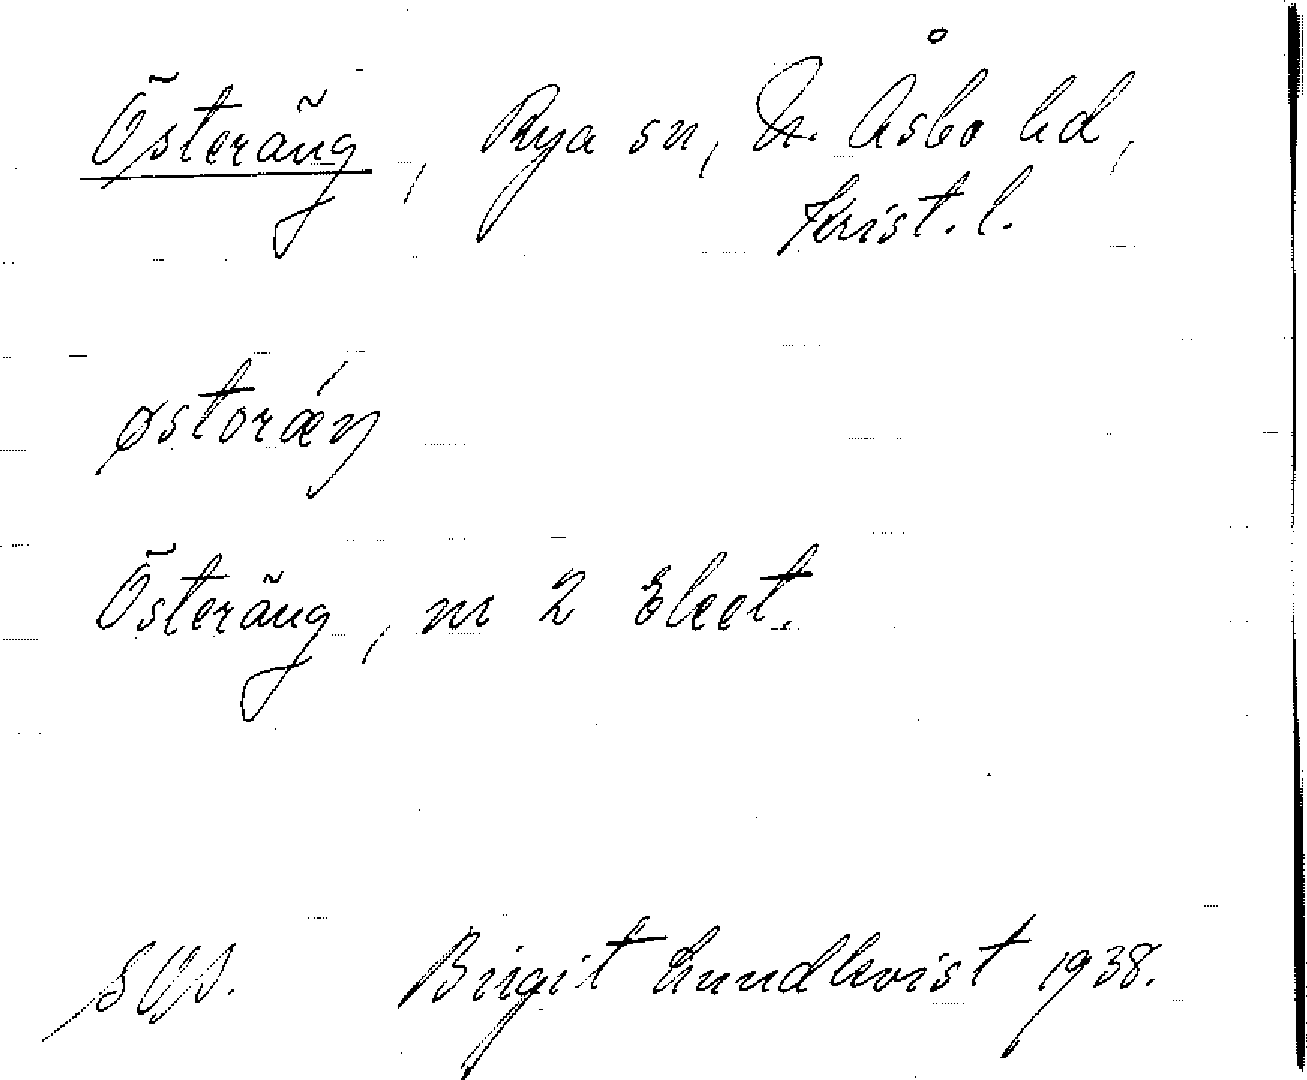 Österäng, Rya sn, N. Åsbo hd,
Krist. l.
østoræ´ŋ
Österäng, nr 2 Ekeet.
SOA. Birgit Lundkvist 1938.